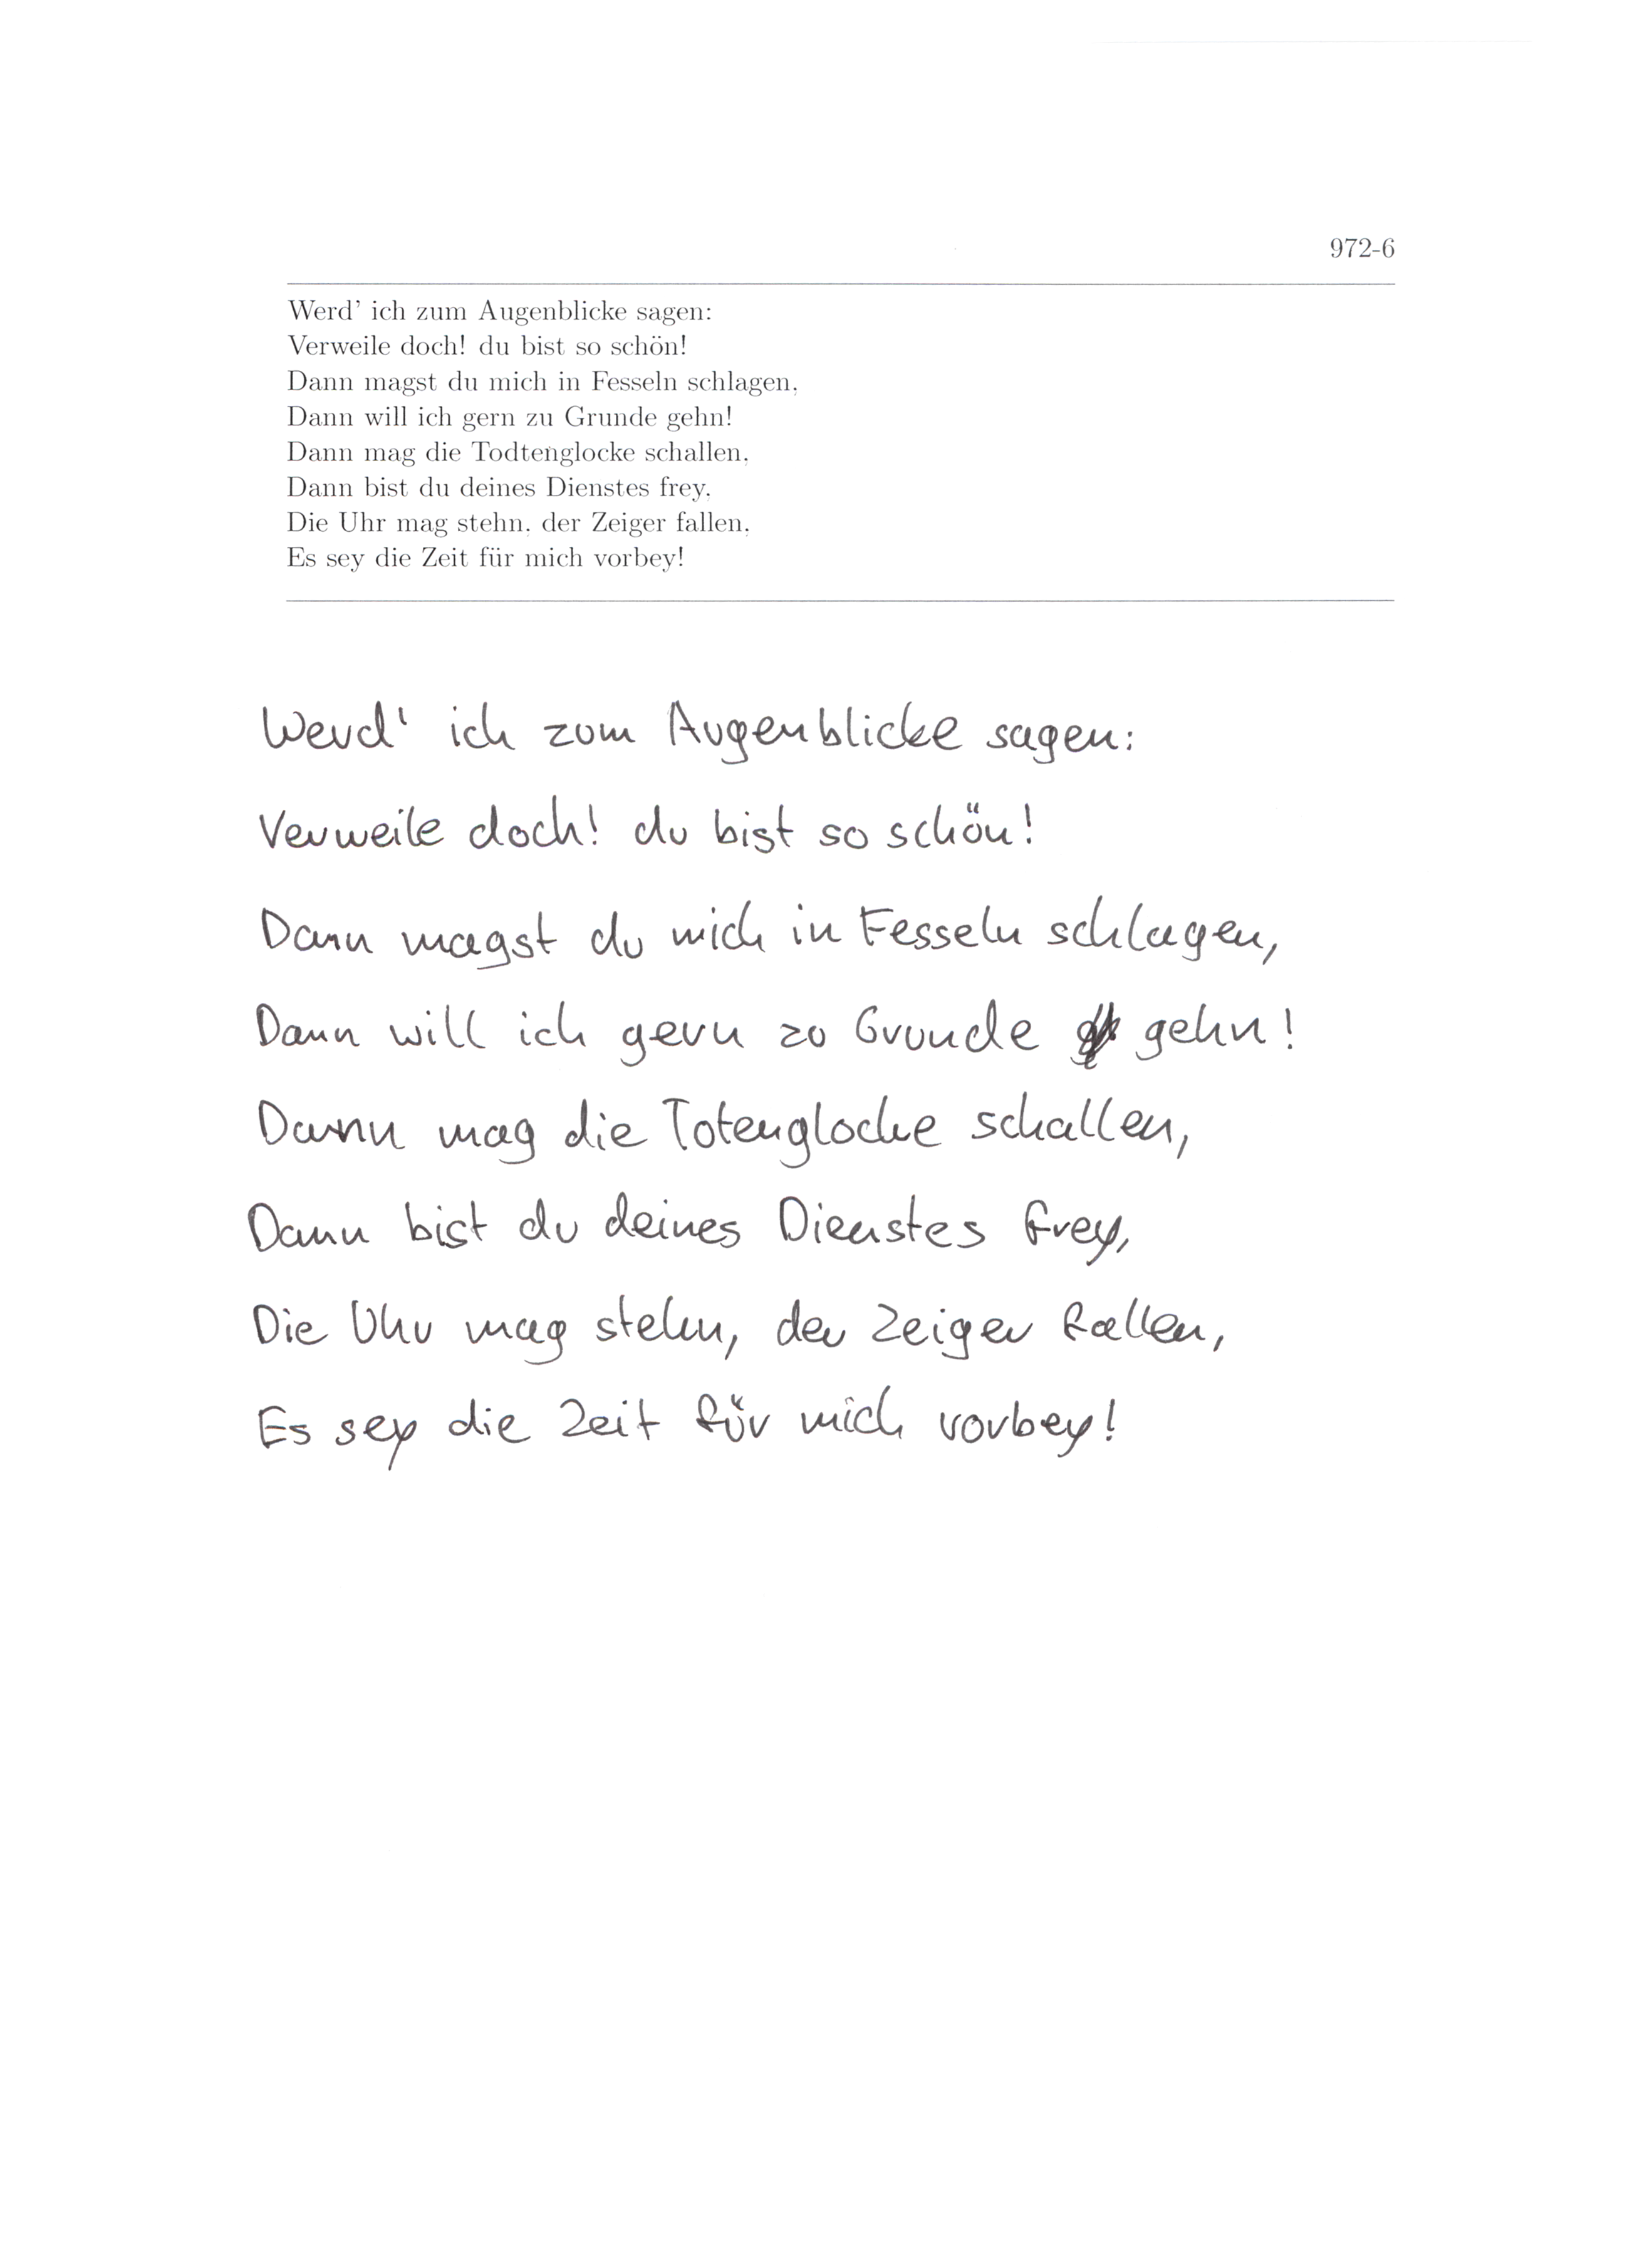 972-6
Werd' ich zum Augenblicke sagen:
Verweile doch! du bist so schön!
Dann magst du mich in Fesseln schlagen,
Dann will ich gern zu Grunde gehn!
Dann mag die Todtenglocke schallen,
Dann bist du deines Dienstes frey,
Die Uhr mag stehn, der Zeiger fallen,
Es sey die Zeit für mich vorbey!
Werd' ich zum Augenblicke sagen:
Verweile doch! du bist so schön!
Dann magst du mich in Fesseln schlagen,
Dann will ich gern zu Grunde gehn!
Dann mag die Totenglocke schallen,
Dann bist du deines Dienstes frey,
Die Uhr mag stehn, der Zeiger fallen,
Es sey die Zeit für mich vorbey!